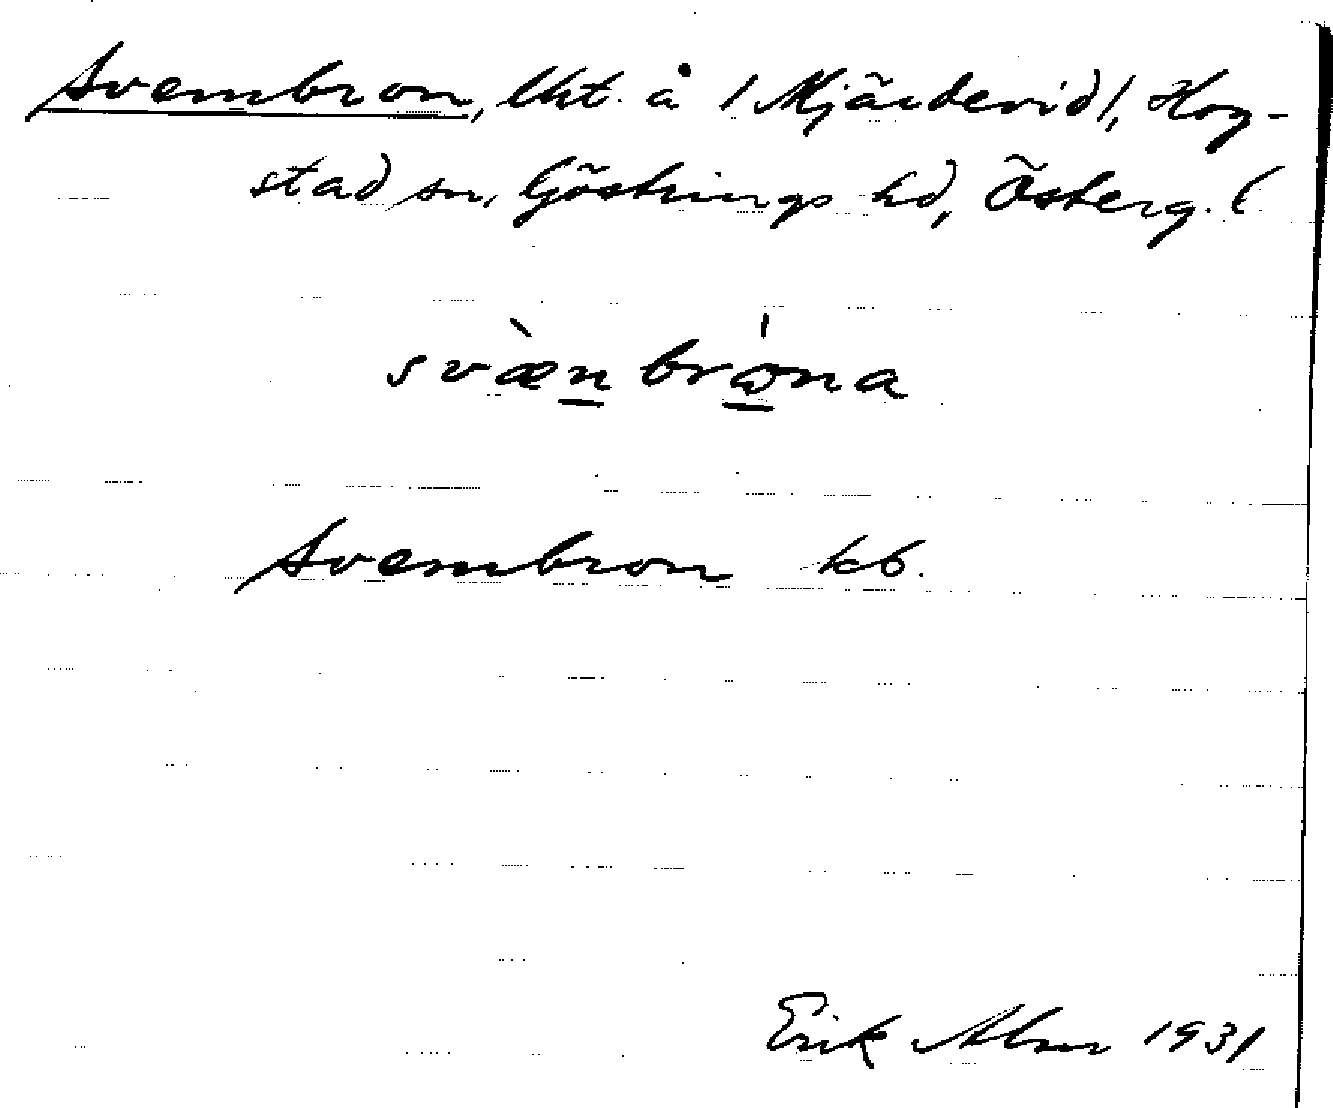 Svenbron, lht. å /Mjärdevid/, Hog-
stad sn, Göstrings hd, Österg. l
svæ̀n brɷ́na
Svenbron kb.
Erik Alm 1931